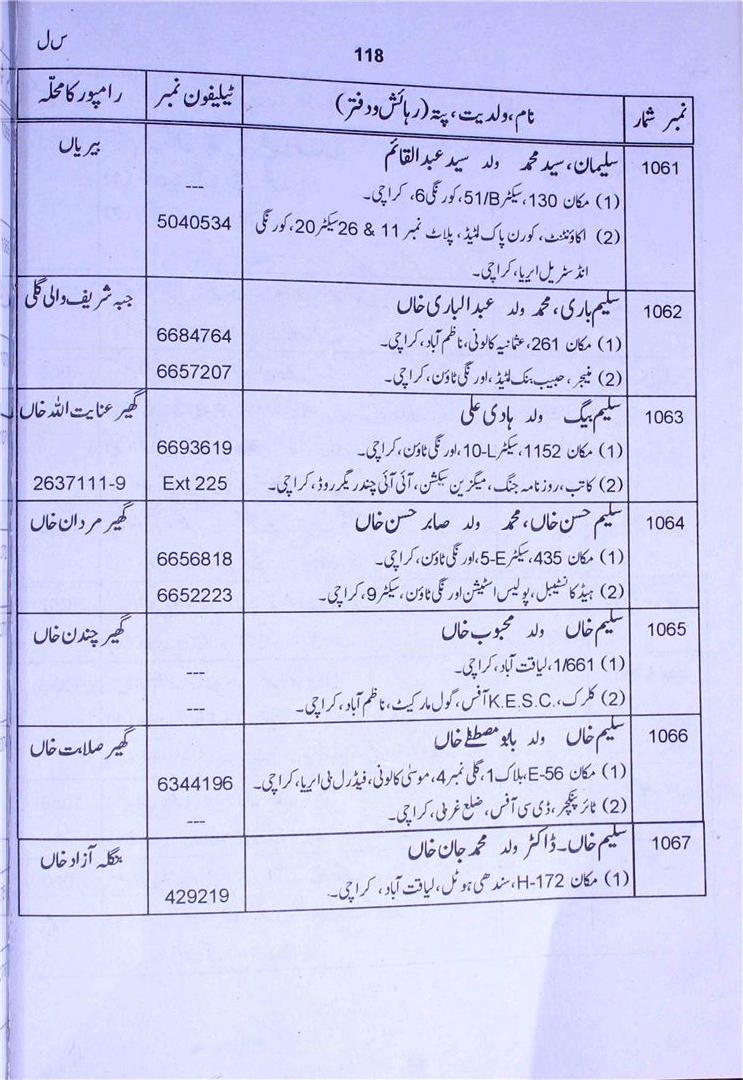 س ل
118
نمبر شمار | نام، ولدیت، پتہ (رہائش و دفتر) | ٹیلیفون نمبر | رامپور کا محلّہ
1061 | سلیمان، سید محمد ولد سید عبدالقائم | بیریاں
(1) مکان 130، سیکٹر 51/B، کورنگی 6، کراچی۔ | ---
(2) اکاؤنٹنٹ، کورن پاک لٹیڈ، پلاٹ نمبر 11 & 26 سیکٹر 20، کورنگی | 5040534
انڈسٹریل ایریا، کراچی۔
1062 | سلیم باری، محمد ولد عبدالباری خاں | جبہ شریف والی گلی
(1) مکان 261، عثمانیہ کالونی، ناظم آباد، کراچی۔ | 6684764
(2) منیجر، حبیب بنک لٹیڈ، اورنگی ٹاؤن، کراچی۔ | 6657207
1063 | سلیم بیگ ولد ہادی علی | گھیر عنایت اللہ خاں
(1) مکان 1152، سیکٹر 10-L، اورنگی ٹاؤن، کراچی۔ | 6693619
(2) کاتب، روزنامہ جنگ، میگزین سیکشن، آئی آئی چندریگر روڈ، کراچی۔ | Ext 225 | 2637111-9
1064 | سلیم حسن خاں، محمد ولد صابر حسن خاں | گھیر مردان خاں
(1) مکان 435، سیکٹر 5-E، اورنگی ٹاؤن، کراچی۔ | 6656818
(2) ہیڈ کانسٹیبل، پولیس اسٹیشن اورنگی ٹاؤن، سیکٹر 9، کراچی۔ | 6652223
1065 | سلیم خاں ولد محبوب خاں | گھیر چندن خاں
(1) 1/661، لیاقت آباد، کراچی۔ | ---
(2) کلرک، K.E.S.C. آفس، گول مارکیٹ، ناظم آباد، کراچی۔ | ---
1066 | سلیم خاں ولد بابو مصطفےٰ خاں | گھیر صلابت خاں
(1) مکان E-56، بلاک 1، گلی نمبر 4، موسیٰ کالونی، فیڈرل بی ایریا، کراچی۔ | 6344196
(2) ٹائر پنکچر، ڈی سی آفس، ضلع غربی، کراچی۔ | ---
1067 | سلیم خاں۔ ڈاکٹر ولد محمد جان خاں | بنگلہ آزاد خاں
(1) مکان H-172، سندھی ہوٹل، لیاقت آباد، کراچی۔ | 429219